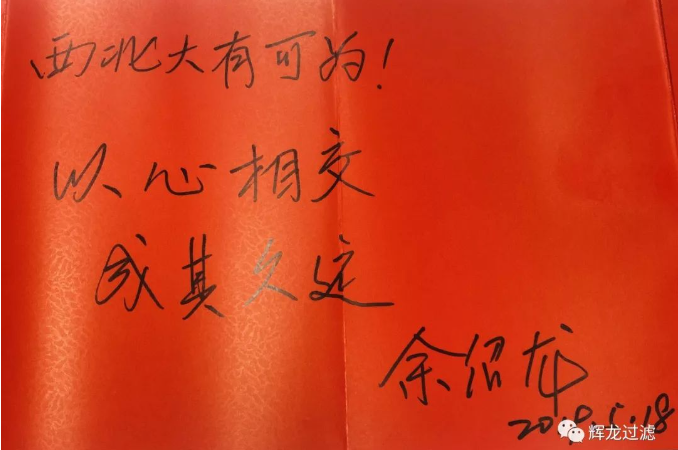 西北大有可为！
以心相交
成其久远
余绍龙
辉龙过滤